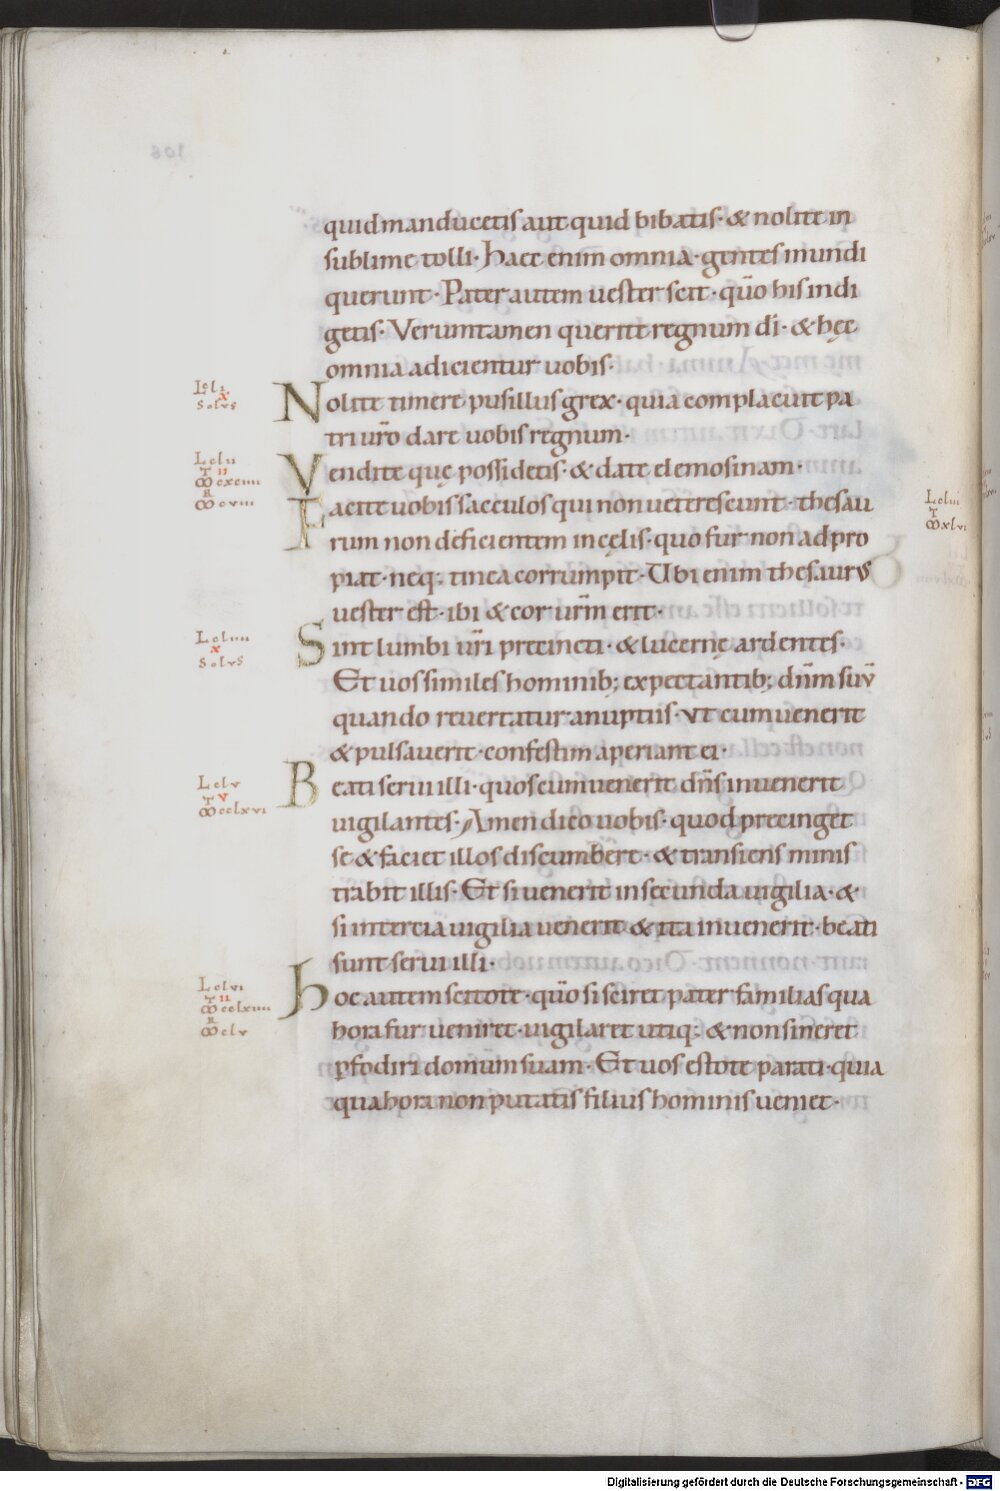 quid manducetis aut quid bibatis· & nolite in
sublime tolli· Haec enim omnia· gentes mundi
querunt· Pater autem uester scit· qūo his indi
getis· Verumtamen querite regnum dī· & hęc
omnia adicientur uobis·
Lcli
X
Solus
Nolite timere pusillus grex· quia complacuit pa
tri ur̄o dare uobis regnum·
Lclii
T II
M cxciiii
R
M cviii
Vendite quę possidetis· & date elemosinam·
Facite uobis sacculos qui non ueterescunt· thesau
Lcliii
T
M xlvi
rum non deficientem in cęlis· quo fur non adpro
piat· neq; tinea corrumpit· Ubi enim thesaurus
uester est· ibi & cor ur̄m erit·
Lcliiii
X
Solus
Sint lumbi ur̄i precincti· & lucernę ardentes·
Et uos similes hominib; expectantib; dn̄m suū
quando reuertatur a nuptiis· ut cum uenerit
& pulsauerit· confestim aperiant ei·
Lclv
T V
M cclxvi
Beati serui illi· quos cum uenerit dn̄s inuenerit
uigilantes· Amen dico uobis· quod precinget
se & faciet illos discumbere· & transiens minis
trabit illis· Et si uenerit in secunda uigilia· &
si in tercia uigilia uenerit & ita inuenerit· beati
sunt serui illi·
Lclvi
T II
M cclxiiii
R
M clv
Hoc autem scitote· qūo si sciret pater familias qua
hora fur ueniret· uigilaret utiq; & non sineret
ꝑfodiri domum suam· Et uos estote parati· quia
qua hora non putatis filius hominis ueniet·
Digitalisierung gefördert durch die Deutsche Forschungsgemeinschaft - DFG